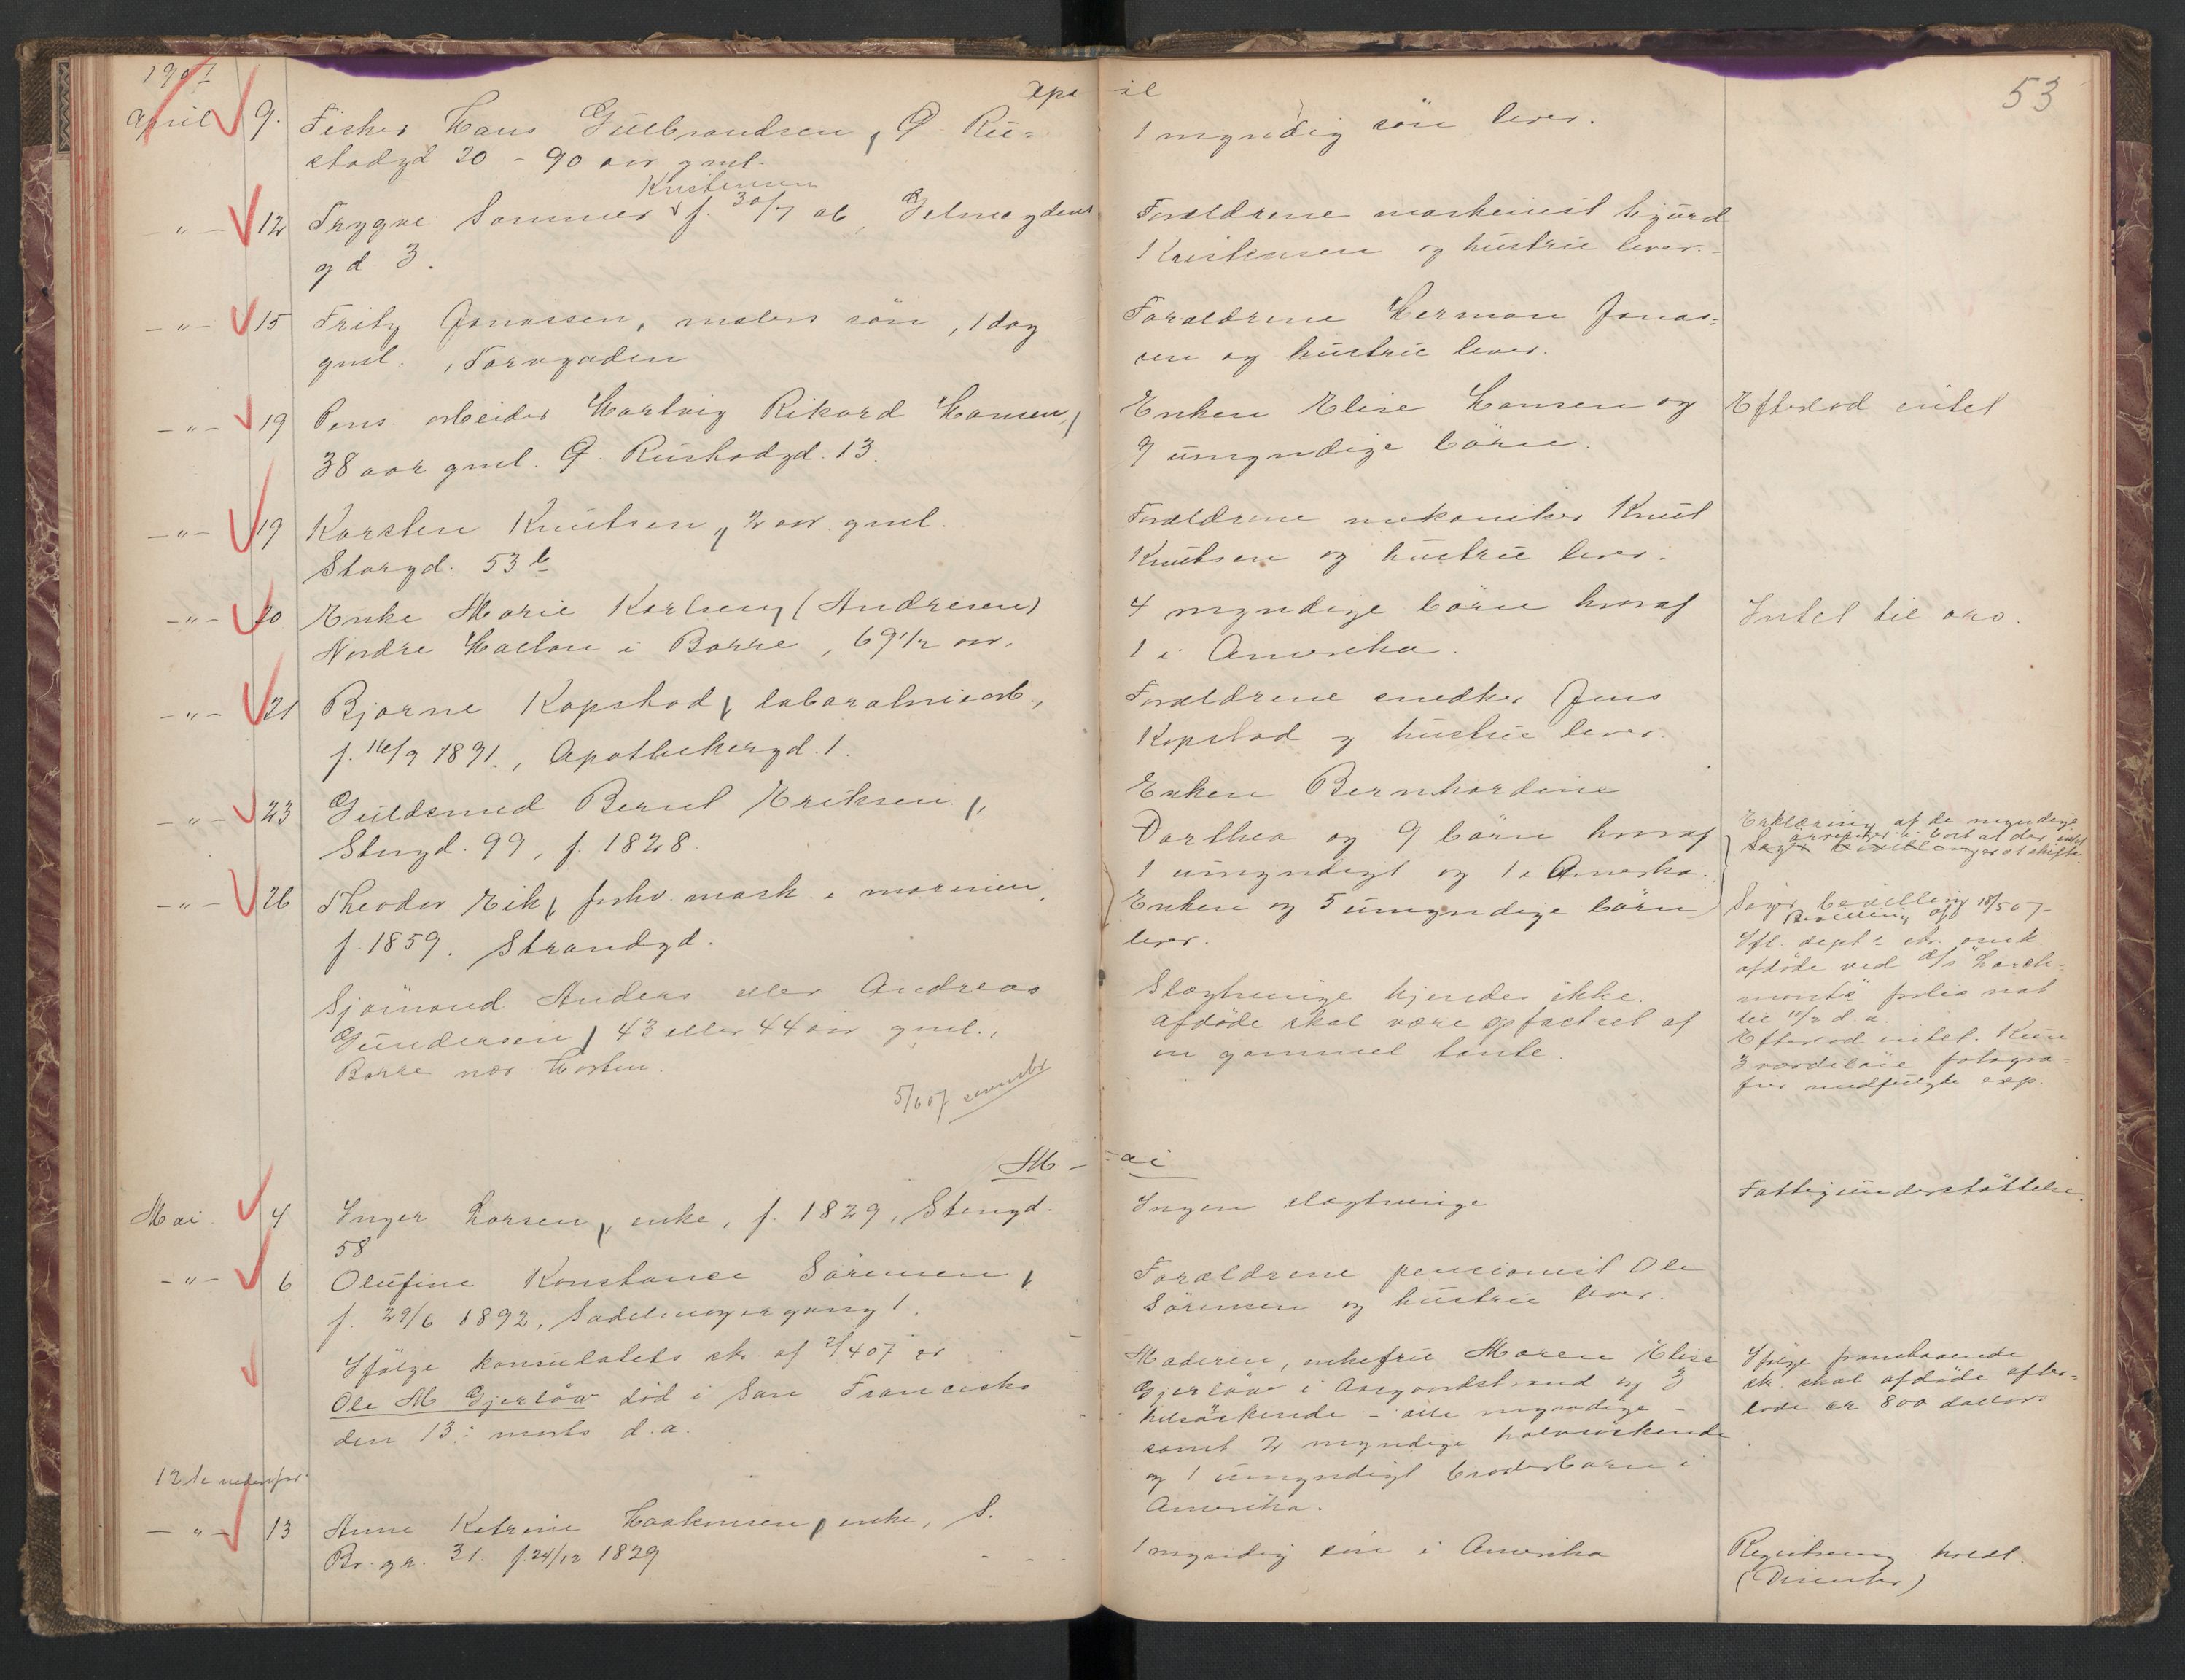 1907
April
53
April 9. Fisker Hans Gulbrandsen, G. Ru=
stadgd 20 - 90 aar gml.
1 myndig søn lever.
Kristensen
-"- 12 Trygve Sommer f. 30/7 06,
gd 3.
Forældrene maskinist Sigurd
Kristensen og hustru lever.-
-"- 15 Fritz Jonassen, malers søn, 1 dag
gml., Torvgaden
Forældrene Herman Jonas=
sen og hustru lever.
-"- 19 Pens. arbeider Hartvig Rikard Hansen,
38 aar gml. G. Rustadgd. 13.
Enken Elise Hansen og
9 umyndige børn.
Efterlod intet
-"- 19 Karsten Knutsen, 2 aar gml.
Storgd. 53 b
Forældrene mekaniker Knut
Knutsen og hustru lever.
-"- 20 Enke Marie Karlsen, (Andresen)
Nordre i Borre, 69 1/2 aar.
4 myndige børn hvoraf
1 i Amerika.
Intet til arv.
-"- 21 Bjarne Kopstad, laboratoriearb.,
f. 16/9 1891., Apothekergd. 1.
Forældrene snedker Jens
Kopstad og hustru lever.
-"- 23 Guldsmed Bernt Eriksen,
Storgd. 99, f. 1828.
Enken Bernhardine
Dorthea og 9 børn hvoraf
1 umyndigt og 1 i Amerika.
Erklæring af de myndige
arvinger at der intet
er at skifte.
-"- 26 Theodor Eik, forhv. mask. i marinen,
f. 1859. Strandgd.
Enken og 5 umyndige børn
lever.
Søger bevilling 18/5 07-
Bevilling af
Sjømand Anders eller Andreas
Gundersen, 43 eller 44 aar gml.,
Borre nær Horten.
5/6 07
Slægtninge kjendes ikke.
Afdøde skal være opfostret af
en gammel tante.
Ifl. dept.s skr. omk.
afdøde ved
11/2 d.a.
Efterlod intet. Kun
3 værdiløse fotogra=
fier medfulgte exp.
M - ai
Mai 4 Inger Larsen, enke, f. 1829, Storgd.
58
Ingen slægtninge
Fattigunderstøttelse.
-"- 6 Olufine Konstance Sørensen,
f. 29/6 1892, Sadelmagergang 1.
Forældrene pensionist Ole
Sørensen og hustru lever.
Ifølge konsulatets skr. af 2/4 07 er
Ole M Gjerløw død i San Francisko
den 13: marts d.a.
Moderen, enkefru Maren Elise
Gjerløw i Aasgaardstrand og 3
helsøskende - alle myndige -
samt 2 myndige halvsøskende
og 1 umyndigt broderbarn i
Amerika.
Ifølge
skr. skal afdøde efter=
lade ca 800 dollars
12te nedenfor.
-"- 13 Anne Katrine Haakensen, enke, S.
Br. gr. 31. f. 24/12 1829
1 myndig søn i Amerika
Registrering holdt.
(Dissenter)